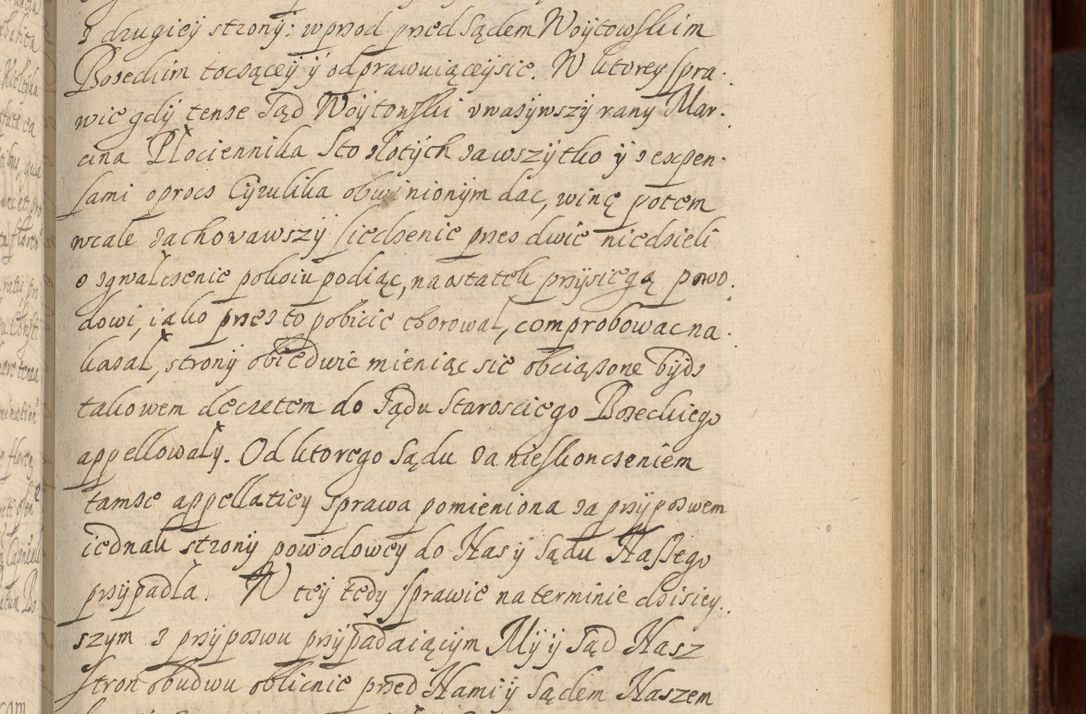 z drugiey strony: wprzod przed Sądem Woytowskim
Bozeckim toczącey y odprawuiąceysie. W ktorey spra-
wie gdy tenże Sąd Woytowski vważywszy rany Mar-
cina Płociennika Sto złotych zawszytko y z expen-
sami oprocz Cyrulika obwinionym dac, winę potem
wcale zachowawszy siedzenie przez dwie niedzieli
o zgwałcenie pokoiu podiąc, naostatek przysięgą powo-
dowi, iako przez to pobicie chorował, comprobowac na-
kazał, strony obiedwie mieniąc sie obciążone bydz
takowem decretem do Sądu Starosciego Bozeckiego
appellowały. Od ktorego Sądu za nieskonczeniem
tamze appellatiey sprawa pomieniona za przypozwem
iednak strony powodowey do Nas y Sądu Naszego
przypadła. W tey tedy sprawie na terminie dzisiey-
szym z przypozwu przypadaiącym My y Sąd Nasz
stron obudwu oblicnie przed Nami y Sądem Naszem